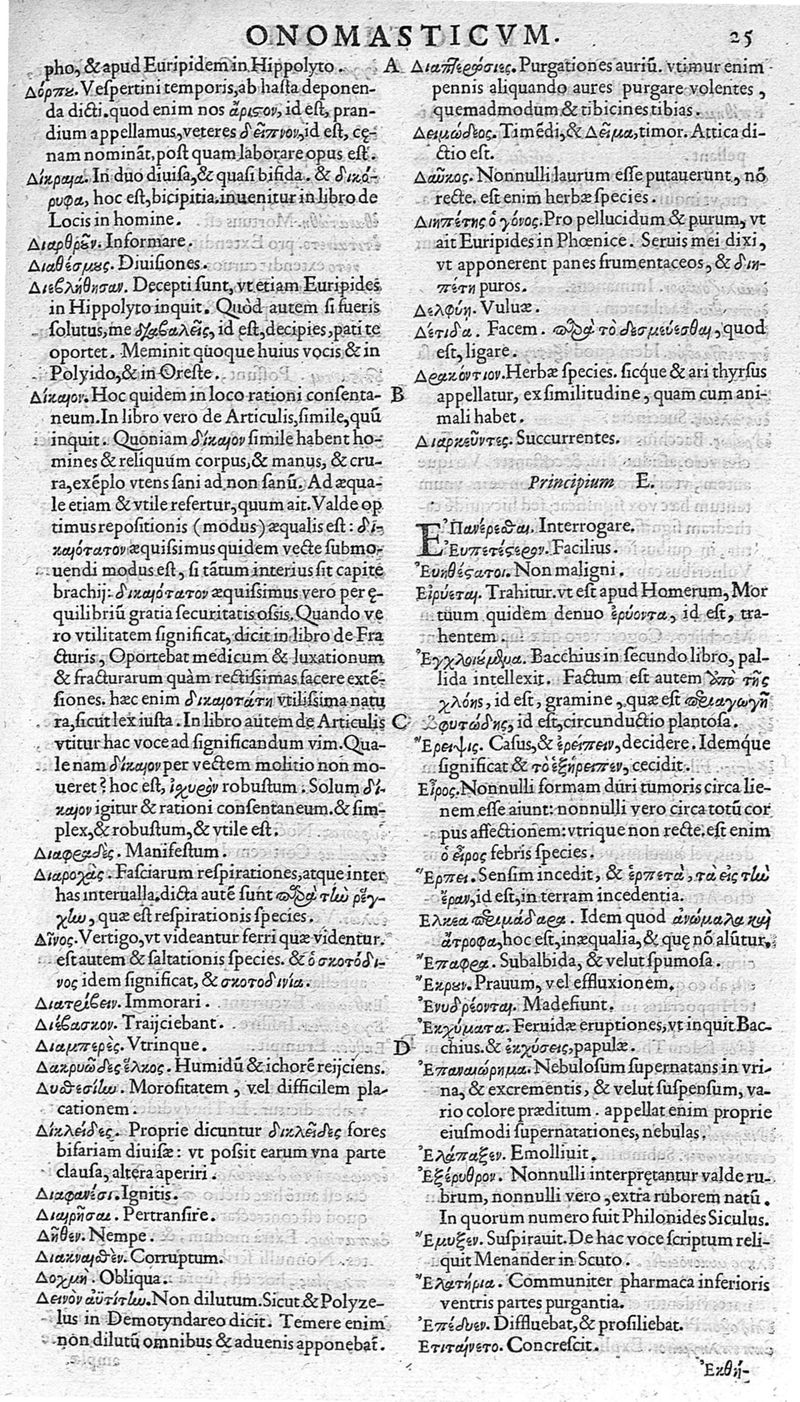 ONOMASTICVM. 25
pho, & apud Euripidem in Hippolyto. A
Δόρπυ. Vespertini temporis, ab hasta deponen-
da dicti. quod enim nos ἄριστον, id est, pran-
dium appellamus, veteres δεῖπνον, id est, cę-
nam nominãt, post quam laborare opus est.
Δίκραια. In duo diuisa, & quasi bifida. & δικό-
ρυφα, hoc est, bicipitia. inuenitur in libro de
Locis in homine.
Διαρθροῦν. Informare.
Διαθέσμους. Diuisiones.
Διεβλήθησαν. Decepti sunt, vt etiam Euripides
in Hippolyto inquit. Quòd autem si fueris
solutus, me διαβαλεῖς, id est, decipies, pati te
oportet. Meminit quoque huius vocis & in
Polyido, & in Oreste.
Δίκαιον. Hoc quidem in loco rationi consenta- B
neum. In libro vero de Articulis, simile, quũ
inquit. Quoniam δίκαιον simile habent ho-
mines & reliquum corpus, & manus, & cru-
ra, exẽplo vtens sani ad non sanũ. Ad æqua-
le etiam & vtile refertur, quum ait. Valde op
timus repositionis (modus) æqualis est: δι-
καιότατον æquissimus quidem vecte submo-
uendi modus est, si tãtum interius sit capite
brachij: δικαιότατον æquissimus vero per ę-
quilibriũ gratia securitatis ossis. Quando ve
ro vtilitatem significat, dicit in libro de Fra
cturis, Oportebat medicum & luxationum
& fracturarum quàm rectissimas facere extẽ-
siones. hæc enim δικαιοτάτη vtilissima natu
ra, sicut lex iusta. In libro autem de Articulis C
vtitur hac voce ad significandum vim. Qua-
le nam δίκαιον per vectem molitio non mo-
ueret? hoc est, ἰχυρὸν robustum. Solum δί-
καιον igitur & rationi consentaneum. & sim-
plex, & robustum, & vtile est.
Διαφραδές. Manifestum.
Διαροχάς. Fasciarum respirationes, atque inter
has interualla. dicta autẽ sunt παρὰ τὴν ῥέγ-
χην, quæ est respirationis species.
Δῖνος. Vertigo, vt videantur ferri quæ videntur.
est autem & saltationis species. & ὁ σκοτόδι-
νος idem significat, & σκοτοδινία.
Διατρίβειν. Immorari.
Διέβασκον. Traijciebant.
Διαμπερές. Vtrinque. D
Δακρυῶδες ἕλκος. Humidũ & ichorẽ reijciens.
Δυσθεσίην. Morositatem, vel difficilem pla-
cationem.
Δίκλειδες. Proprie dicuntur δικλεῖδες fores
bifariam diuisæ: vt possit earum vna parte
clausa, altera aperiri.
Διαφανέσι. Ignitis.
Διαιρῆσαι. Pertransire.
Δῆθεν. Nempe.
Διακναισθέν. Corruptum.
Δοχμή. Obliqua.
Δεινὸν αὐτίτην. Non dilutum. Sicut & Polyze-
lus in Demotyndareo dicit. Temere enim
non dilutũ omnibus & aduenis apponebat.
Διαπτερώσιες. Purgationes auriũ. vtimur enim
pennis aliquando aures purgare volentes,
quemadmodum & tibicines tibias.
Δειμώδεος. Timẽdi, & Δεῖμα, timor. Attica di-
ctio est.
Δαῦκος. Nonnulli laurum esse putauerunt, nõ
recte. est enim herbæ species.
Διηπέτης ὁ γόνος. Pro pellucidum & purum, vt
ait Euripides in Phœnice. Seruis mei dixi,
vt apponerent panes frumentaceos, & διη-
πέτη puros.
Δελφύη. Vuluæ.
Δέτιδα. Facem. παρὰ τὸ δεσμεύεσθαι, quod
est, ligare.
Δρακόντιον. Herbæ species. sicque & ari thyrsus
appellatur, ex similitudine, quam cum ani-
mali habet.
Διαρκεῦντες. Succurrentes.
Principium E.
ἘΠανέρεσθαι. Interrogare.
Ἐυπετέστερον. Facilius.
Ἐυηθέστατοι. Non maligni.
Εἰρύεται. Trahitur. vt est apud Homerum, Mor
tuum quidem denuo ἐρύοντα, id est, tra-
hentem.
Ἐγχλοιούμενα. Bacchius in secundo libro, pal-
lida intellexit. Factum est autem ὑπὸ τῆς
χλόης, id est, gramine, quæ est περιαγωγὴ
φυτώδης, id est, circunductio plantosa.
Ἔρειψις. Casus, & ἐρείπειν, decidere. Idemque
significat & τὸ ἐξήρειπεν, cecidit.
Εἶρος. Nonnulli formam duri tumoris circa lie-
nem esse aiunt: nonnulli vero circa totũ cor
pus affectionem: vtrique non recte. est enim
ὁ εἶρος febris species.
Ἕρπει. Sensim incedit, & ἑρπετὰ, τὰ εἰς τὴν
ἔραν, id est, in terram incedentia.
Ελκεα περιμάδαρα. Idem quod ἀνώμαλα καὶ
ἄτροφα, hoc est, inæqualia, & quę nõ alũtur.
Ἔπαφρα. Subalbida, & velut spumosa.
Ἔκρουν. Prauum, vel effluxionem.
Ἐνυδρέονται. Madefiunt.
Ἐκχύματα. Feruidæ eruptiones, vt inquit Bac-
chius. & ἐκχύσεις, papulæ.
Ἐπαναιώρημα. Nebulosum supernatans in vri-
na, & excrementis, & velut suspensum, va-
rio colore præditum. appellat enim proprie
eiusmodi supernatationes, nebulas.
Ἐλάπαξεν. Emolliuit.
Ἐξέρυθρον. Nonnulli interpretantur valde ru-
brum, nonnulli vero, extra ruborem natũ.
In quorum numero fuit Philonides Siculus.
Ἔμυξεν. Suspirauit. De hac voce scriptum reli-
quit Menander in Scuto.
Ἐλατήρια. Communiter pharmaca inferioris
ventris partes purgantia.
Ἐπέδυεν. Diffluebat, & prosiliebat.
Ετιταίνετο. Concrescit.
Ἐκθή-